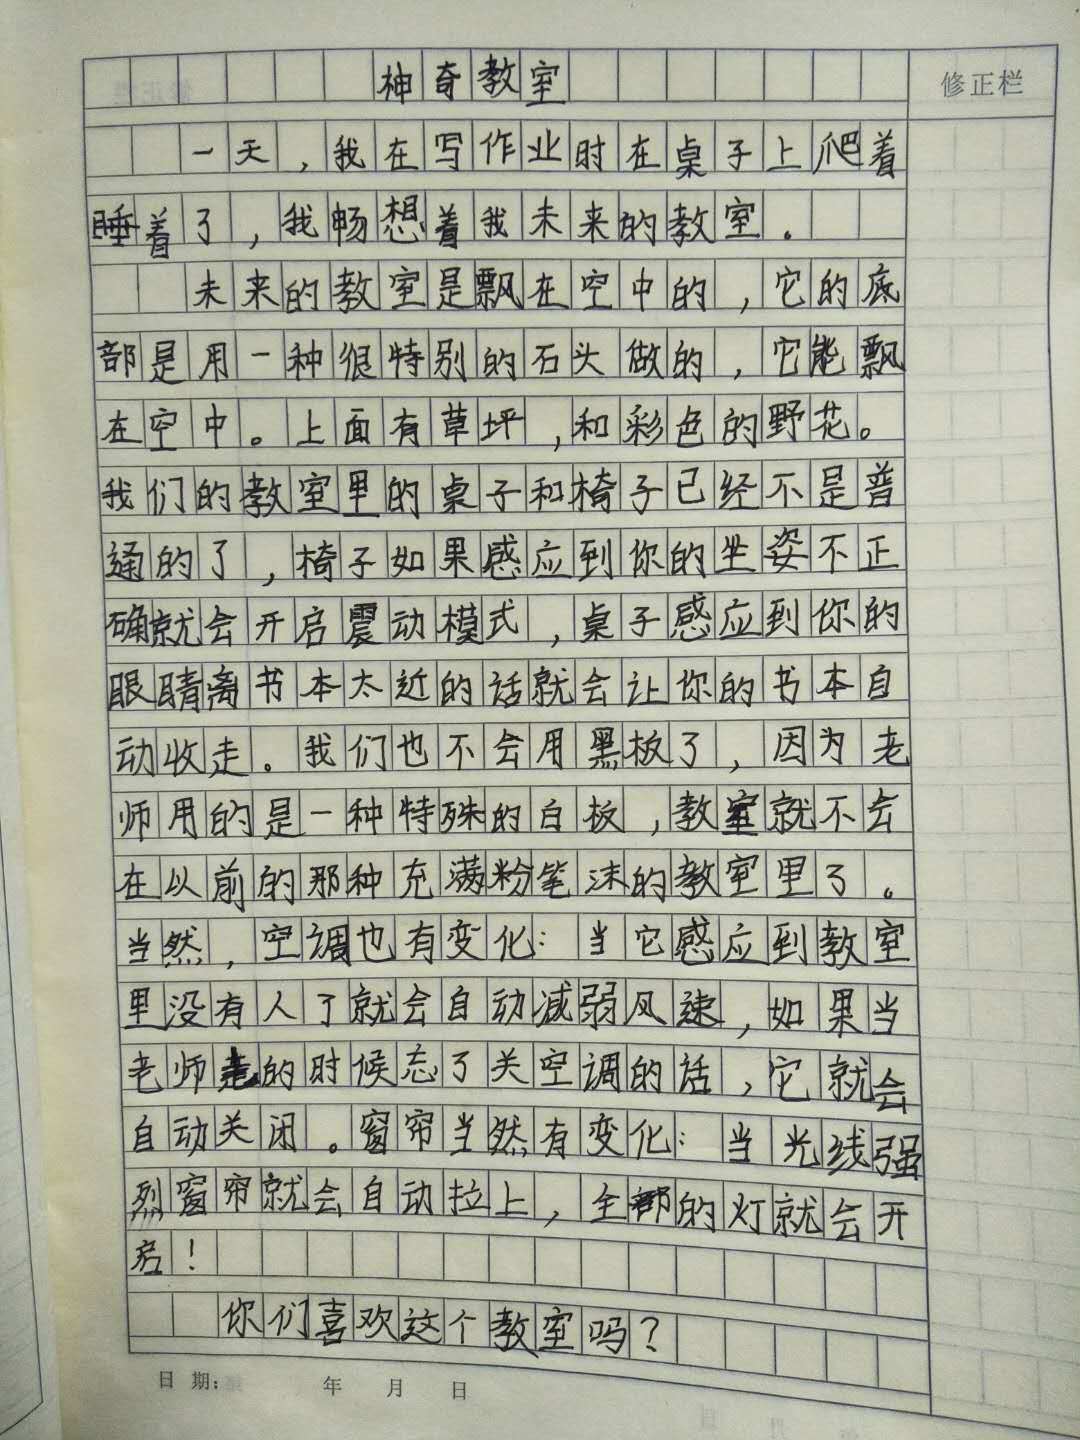 神奇教室
修正栏
一天，我在写作业时在桌子上爬着
睡着了，我畅想着我未来的教室．
未来的教室是飘在空中的，它的底
部是用一种很特别的石头做的，它能飘
在空中。上面有草坪，和彩色的野花。
我们的教室里的桌子和椅子已经不是普
通的了，椅子如果感应到你的坐姿不正
确就会开启震动模式，桌子感应到你的
眼睛离书本太近的话就会让你的书本自
动收走。我们也不会用黑板了，因为老
师用的是一种特殊的白板，教室就不会
在以前的那种充满粉笔沫的教室里了。
当然，空调也有变化：当它感应到教室
里没有人了就会自动减弱风速，如果当
老师走的时候忘了关空调的话，它就会
自动关闭。窗帘当然有变化：当光线强
烈窗帘就会自动拉上，全部的灯就会开
启！
你们喜欢这个教室吗？
日期： 年 月 日